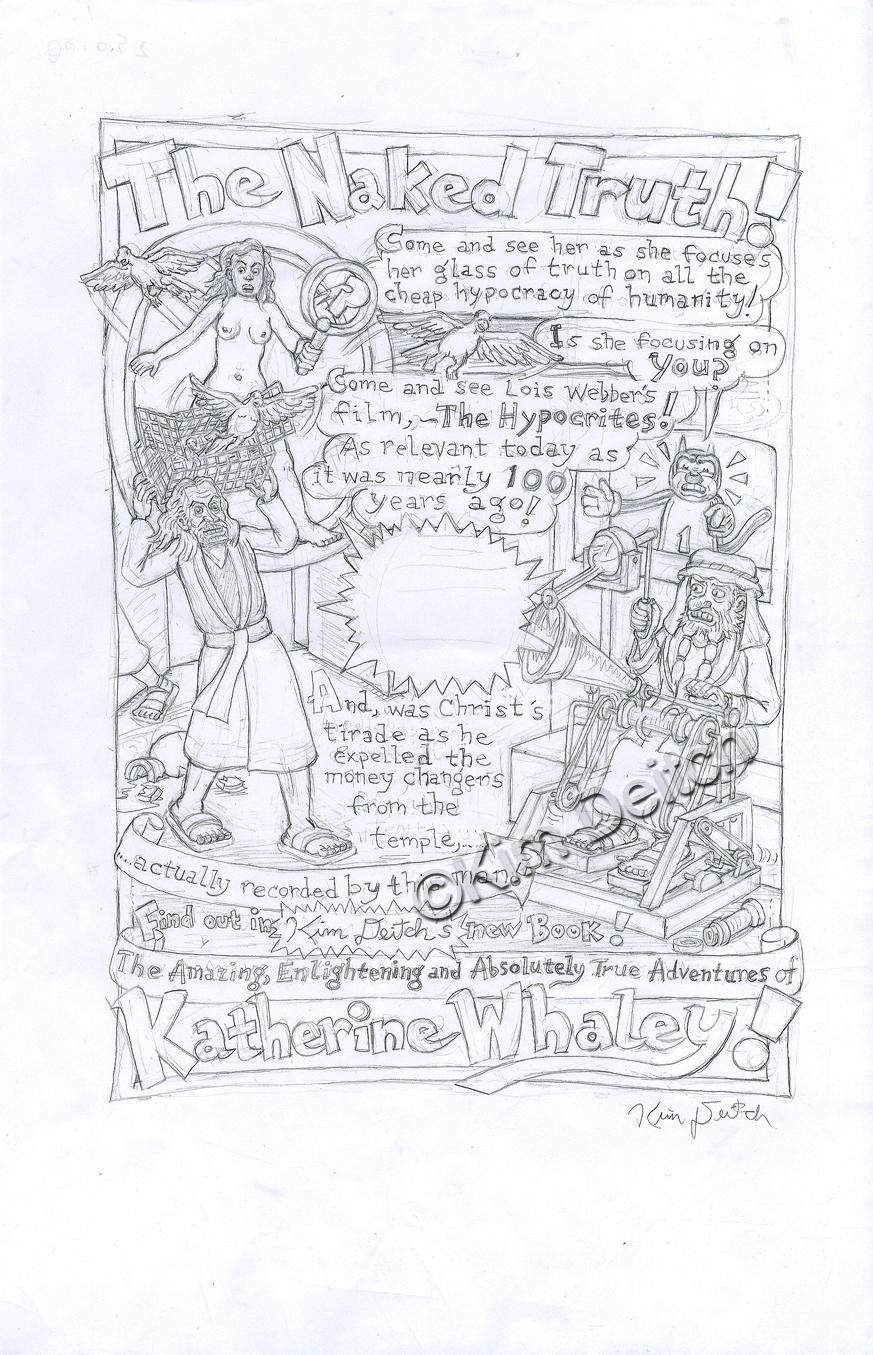 The Naked Truth!
Come and see her as she focuses
her glass of truth on all the
cheap hypocracy of humanity!
Is she focusing on
You?
Come and see Lois Webber's
film,,—The Hypocrites!
As relevant today as
it was nearly 100
years ago!
1
And, was Christ's
tirade as he
expelled the
money changers
from the
temple,....
....actually recorded by this man?
©Kim Deitch
Find out in Kim Deitch's new Book!
The Amazing, Enlightening and Absolutely True Adventures of
Katherine Whaley!
Kim Deitch